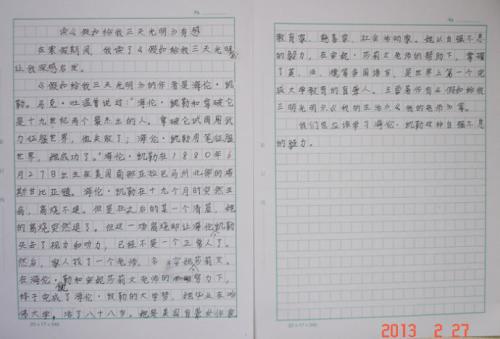 读《假如给我三天光明》有感
在寒假期间，我读了《假如给我三天光明》
让我深感启发。
《假如给我三天光明》的作者是海伦·凯
勒。马克·吐温曾说过："海伦·凯勒和拿破仑
是十九世纪两个最杰出的人。拿破仑试图用武
力征服世界，他失败了；海伦·凯勒用笔征服
世界，她成功了。"海伦·凯勒在1880年6
月27日出生在美国南部亚拉巴马州北部的塔
斯甘比亚镇。海伦·凯勒在十九个月时突然生
病，高烧不退。但是在之后的某一个清晨，她
的高烧突然退了。但这一场高烧却让海伦·凯勒
失去了视力和听力，已经不是一个正常人了。
然后，家人找了一个老师，名字安妮莎莉文。
在海伦·凯勒和安妮莎莉文老师的努力下，
终于完成了海伦·凯勒的大学梦，她毕业在哈
佛大学。活了八十八岁。她是美国盲聋女作家
20×17=340
教育家、慈善家、社会活动家。她以自强不息
的毅力，在安妮·莎莉文老师的帮助下，掌握
了英、法、德等多国语言，是世界上第一个完
成大学教育的盲聋人。主要著作有《假如给我
三天光明》《我的生活》《我的老师》等。
我们也应该学习海伦·凯勒这种自强不息
的毅力。
20×17=340
2013 2 27